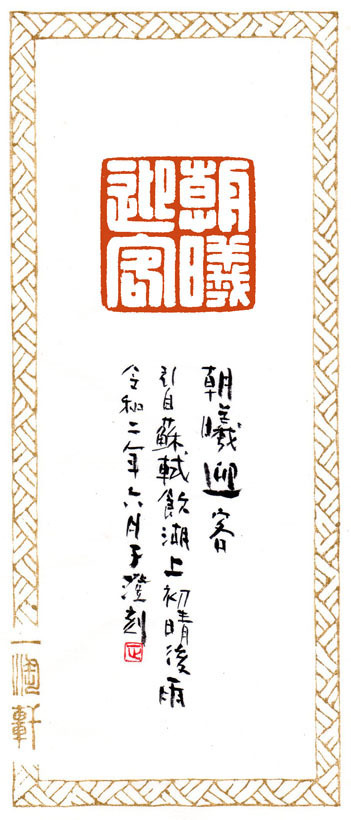 朝曦
迎客
朝曦迎客
引自蘇軾飲湖上初晴後雨
令和二年六月子澄刻